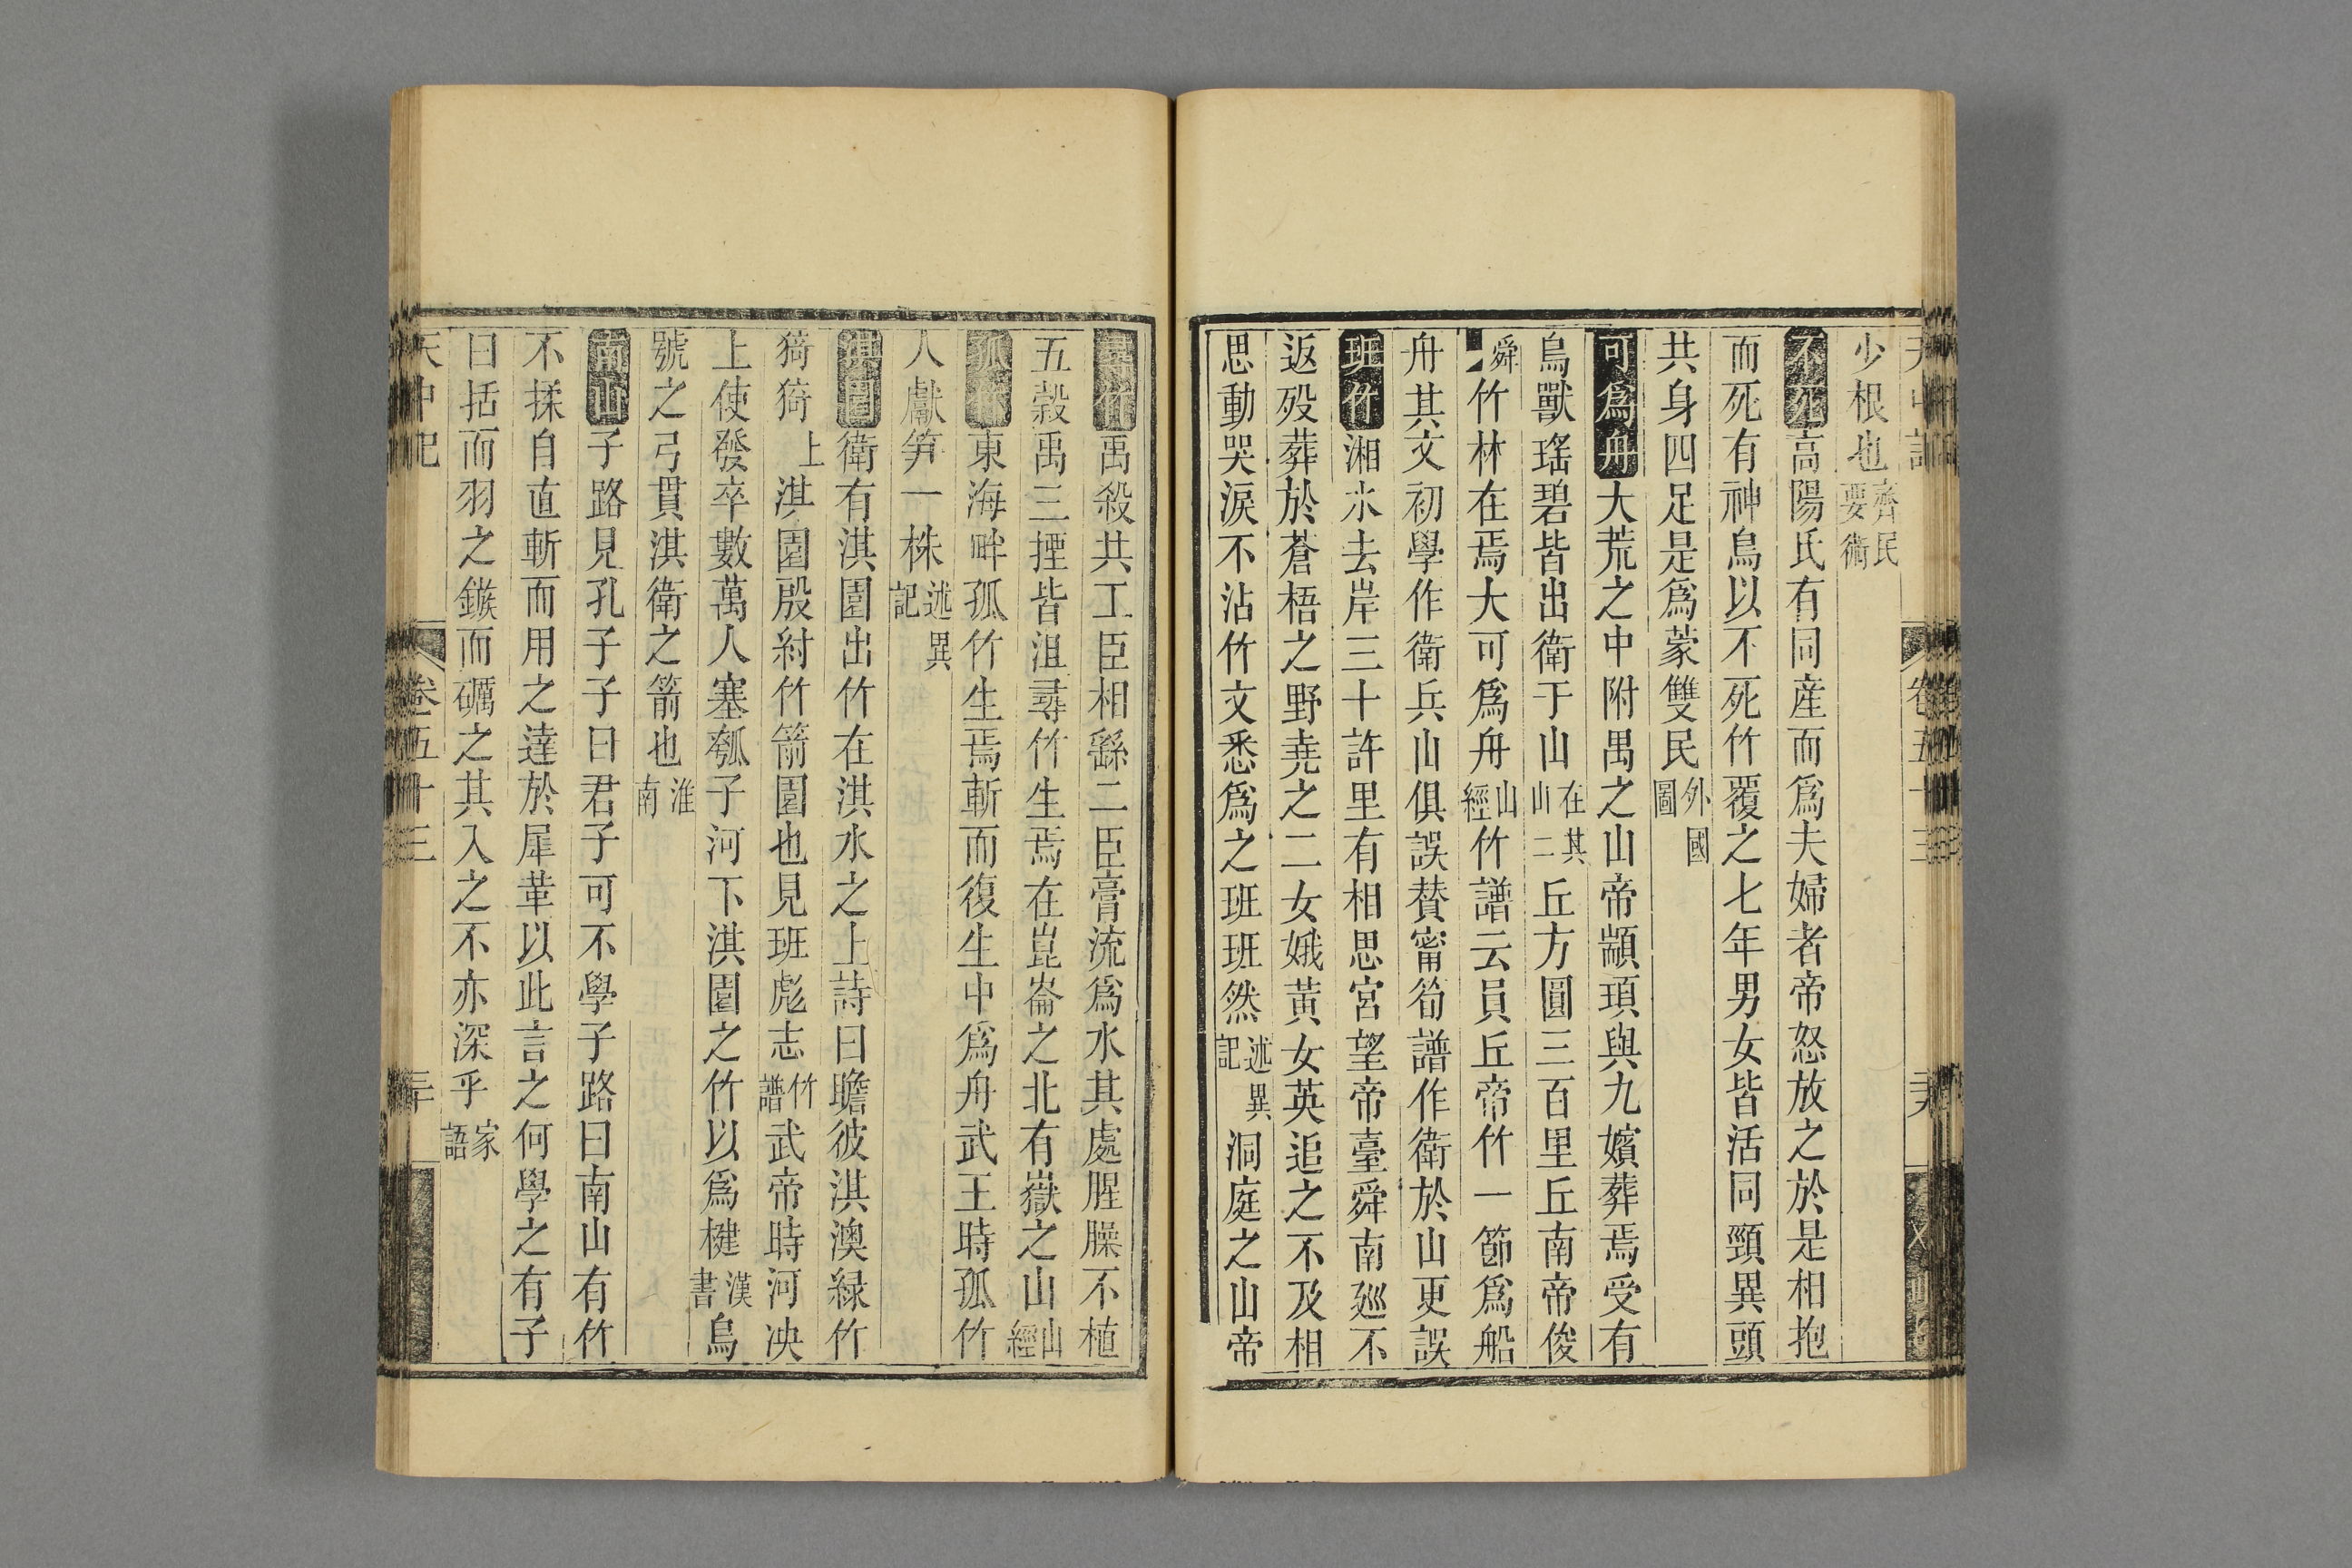 少根也齊民要術
不死高陽氏有同産而爲夫婦者帝怒放之於是相抱
而死有神鳥以不死竹覆之七年男女皆活同頸異頭
共身四足是爲蒙雙民外國圖
可爲舟大荒之中附禺之山帝顓頊與九嬪葬焉受有
鳥獸瑤碧皆出衛于山在其山二丘方圓三百里丘南帝俊
舜竹林在焉大可爲舟山經竹譜云員丘帝竹一節爲船
舟其文初學作衛兵山俱誤賛甯筍譜作衛於山更誤
班竹湘水去岸三十許里有相思宮望帝臺舜南廵不
返歿葬於蒼梧之野堯之二女娥黄女英追之不及相
思動哭淚不沾竹文悉爲之班班然述異記洞庭之山帝
尋竹禹殺共工臣相繇二臣膏流爲水其處腥臊不植
五榖禹三堙皆沮尋竹生焉在崑崙之北有嶽之山山經
孤竹東海畔孤竹生焉斬而復生中爲舟武王時孤竹
人獻笋一株述異記
淇園衛有淇園出竹在淇水之上詩曰瞻彼淇澳緑竹
猗猗上淇園殷紂竹箭園也見班彪志竹譜武帝時河决
上使發卒數萬人塞瓠子河下淇園之竹以爲楗漢書烏
號之弓貫淇衛之箭也淮南
南山子路見孔子子曰君子可不學子路曰南山有竹
不揉自直斬而用之達於犀革以此言之何學之有子
曰括而羽之鏃而礪之其入之不亦深乎家語
天中記 卷五十三 三十